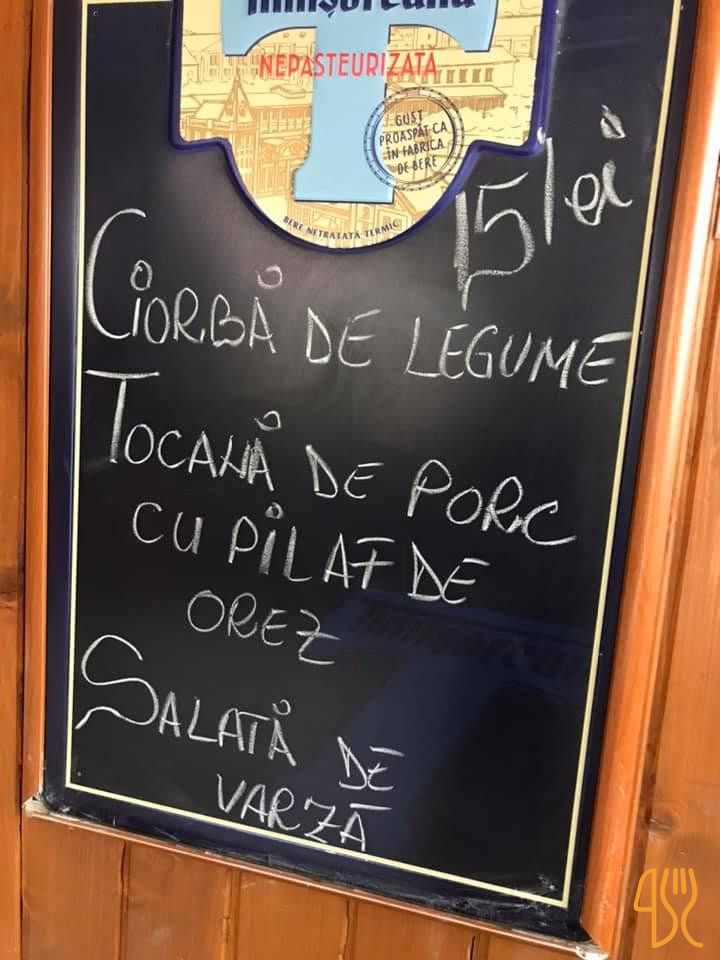 Timișoreana
NEPASTEURIZATĂ
GUST
PROASPĂT CA
ÎN FABRICA
DE BERE
BERE NETRATATĂ TERMIC
15 lei
CIORBĂ DE LEGUME
TOCANĂ DE PORC
CU PILAF DE
OREZ
SALATĂ DE
VARZĂ